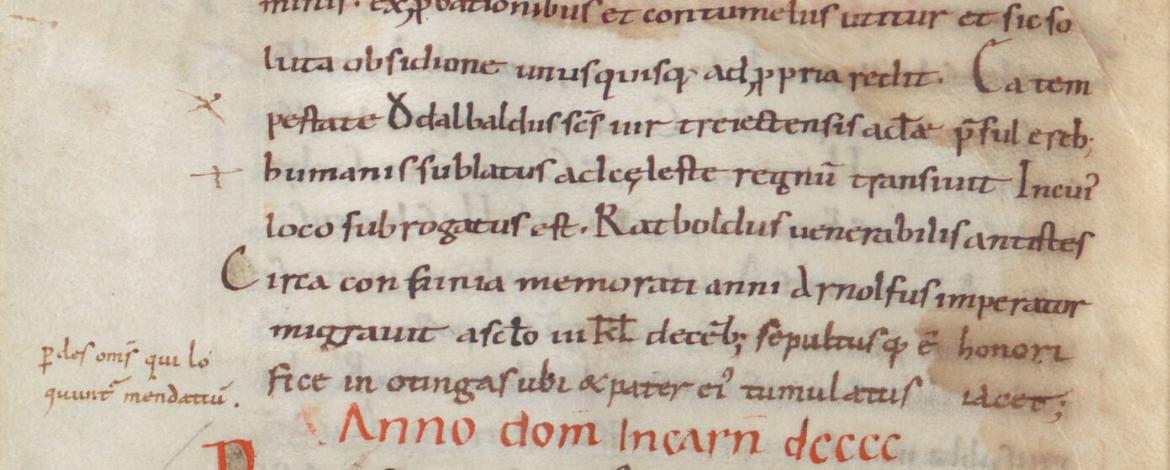 minis. exprobationibus et contumeliis utitur et sic so
luta obsidione unusquisq; ad propria rediit. Ea tem
pestate Odalbaldus scs uir treiectensis acłæ p̄sul ereb;
humanis sublatus ad cęleste regnū transiuit In cui'
loco subrogatus est. Ratboldus uenerabilis antistes
Circa confinia memorati anni Arnolfus imperator
migrauit a scło iii kł decēb; sepultusq; ē honori
fice in otinga subi & pater ei' tumulatus iacet;
p̄des om̄s qui lo
quunt̄ mendatiū.
Anno dom̄ Incarn̄ dcccc